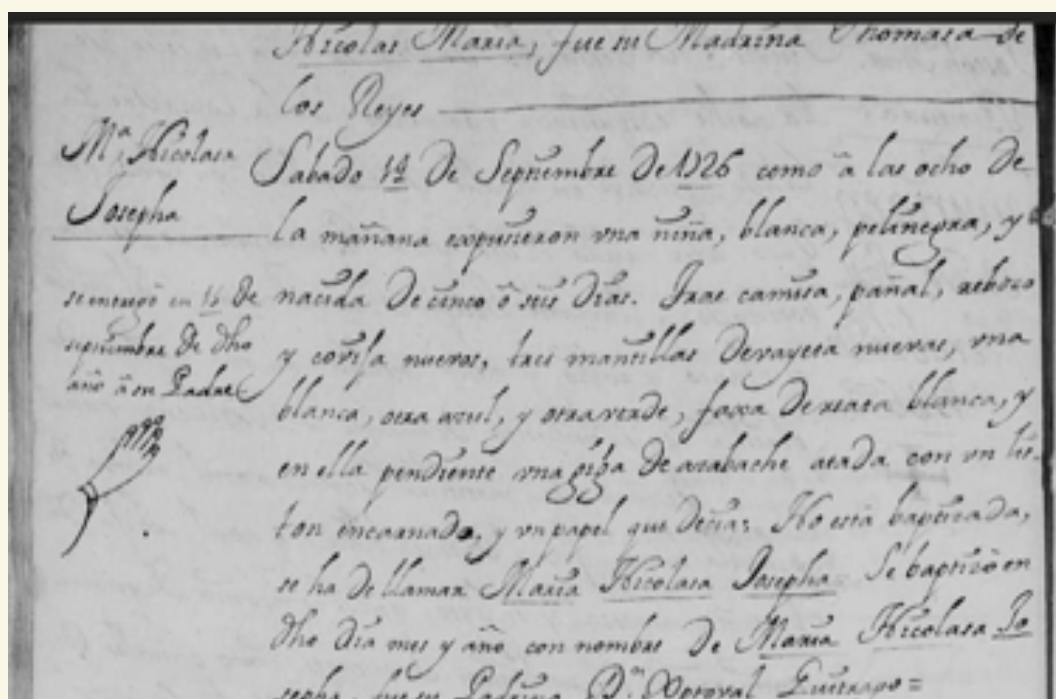 Nicolas Maria, fue su Madrina Thomasa de
los Reyes
Mª Nicolasa
Josepha
se entregó en 16 de
septiembre de dho
año â su Padre
Sabado 14 de Septiembre de 1726 como â las ocho de
la mañana expusieron vna niña, blanca, pelinegra, y
nacida de cinco ô seis dias. Trae camisa, pañal, reboso
y cotilla nuevos, tres mantillas de vayeta nuevas, vna
blanca, otra azul, y otra verde, faxa de reata blanca, y
en ella pendiente vna giga de azabache atada con vn lis-
ton encarnado, y vn papel que decia: No está baptizada,
se ha de llamar Maria Nicolasa Josepha Se baptizò en
dho dia mes y año con nombre de Maria Nicolasa Jo
sepha, fue su Padrino Dn Xptoval